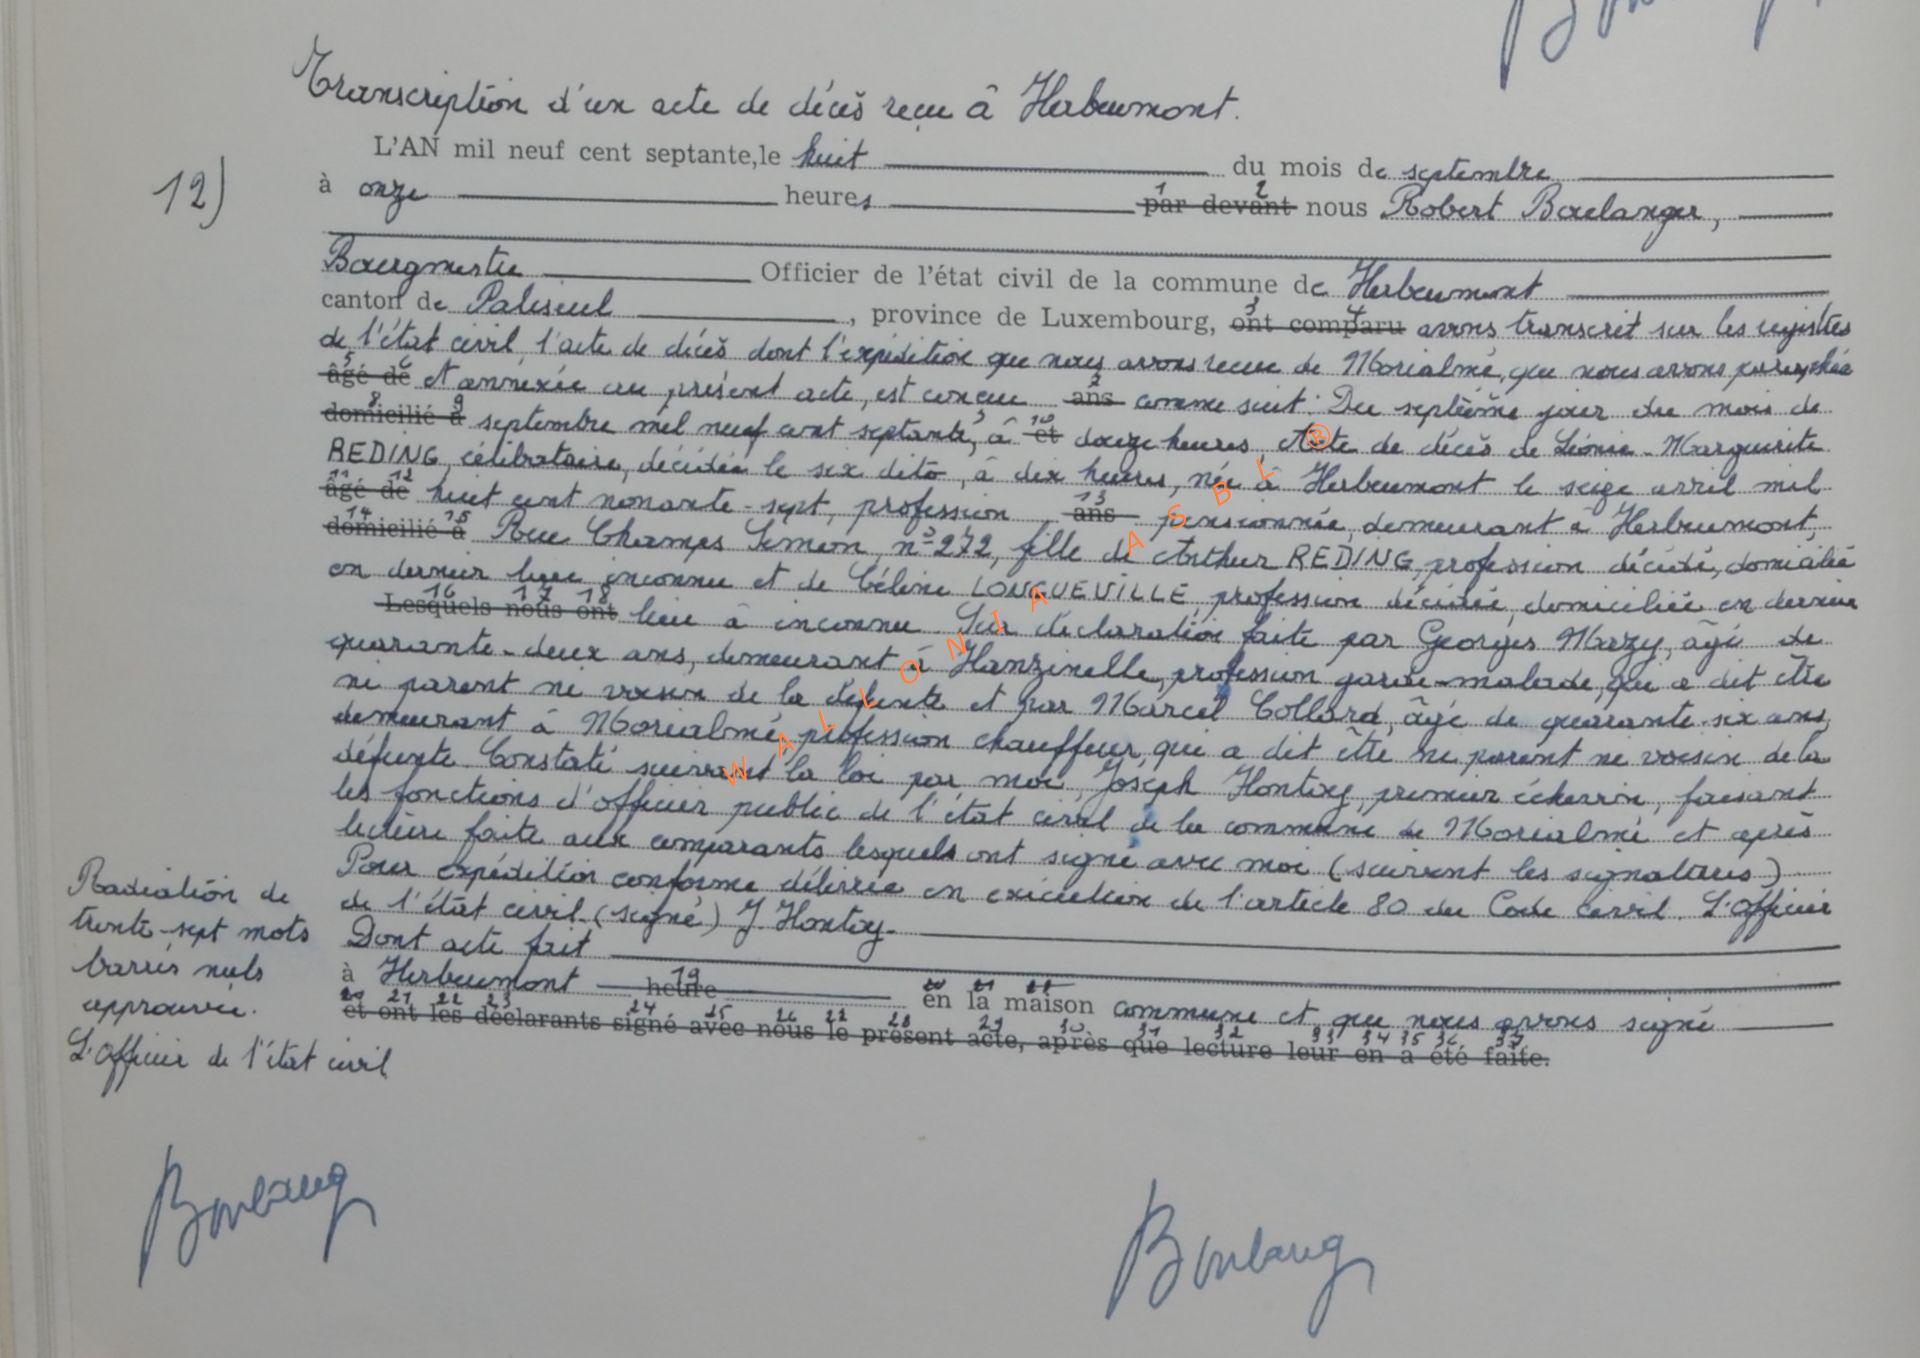 Transcription d'un acte de décès reçu à Herbeumont.
12)
L'AN mil neuf cent septante, le huit du mois de septembre
à onze heures par devant nous Robert Boulanger,
1 2
Bourgmestre Officier de l'état civil de la commune de Herbeumont
canton de Paliseul, province de Luxembourg, ont comparu avons transcrit sur les registres
3 4
de l'état civil, l'acte de décès dont l'expédition que nous avons reçue de Morialmé, que nous avons paraphée
âgé de et annexée au présent acte, est conçue ans comme suit : Du septième jour du mois de
5 6 7
domicilié à septembre mil neuf cent septante, à et douze heures, Acte de décès de Léonie-Marguerite
8 9 10
REDING, célibataire, décédée le six dito, à dix heures, née à Herbeumont le seize avril mil
âgé de huit cent nonante-sept, profession ans pensionnée, demeurant à Herbeumont,
11 12 13
domicilié à Rue Champs Simon, n° 272, fille de Arthur REDING, profession décédé, domicilié
14 15
en dernier lieu inconnu et de Céline LONGUEVILLE, profession décédée, domiciliée en dernier
Lesquels nous ont lieu à inconnu Sur déclaration faite par Georges Mazy, âgé de
16 17 18
quarante-deux ans, demeurant à Hanzinelle, profession garde-malade, qui a dit être
ni parent ni voisin de la défunte et par Marcel Collard, âgé de quarante-six ans,
demeurant à Morialmé, profession chauffeur, qui a dit être ni parent ni voisin de la
défunte Constaté suivant la loi par moi, Joseph Hontoy, premier échevin, faisant
les fonctions d'officier public de l'état civil de la commune de Morialmé et après
lecture faite aux comparants lesquels ont signé avec moi (suivent les signatures)
Pour expédition conforme délivrée en exécution de l'article 80 du Code civil. L'Officier
de l'état civil. (signé) J. Hontoy.
Dont acte fait
à Herbeumont heure en la maison commune et que nous avons signé
19
et ont les déclarants signé avec nous le présent acte, après que lecture leur en a été faite.
20 21 22 23 24 25 26 27 28 29 30 31 32 33 34 35 36 37
Radiation de
trente-sept mots
barrés nuls
approuvée.
L'Officier de l'état civil
Boulang
Boulang
WALLONIA ASBL ®